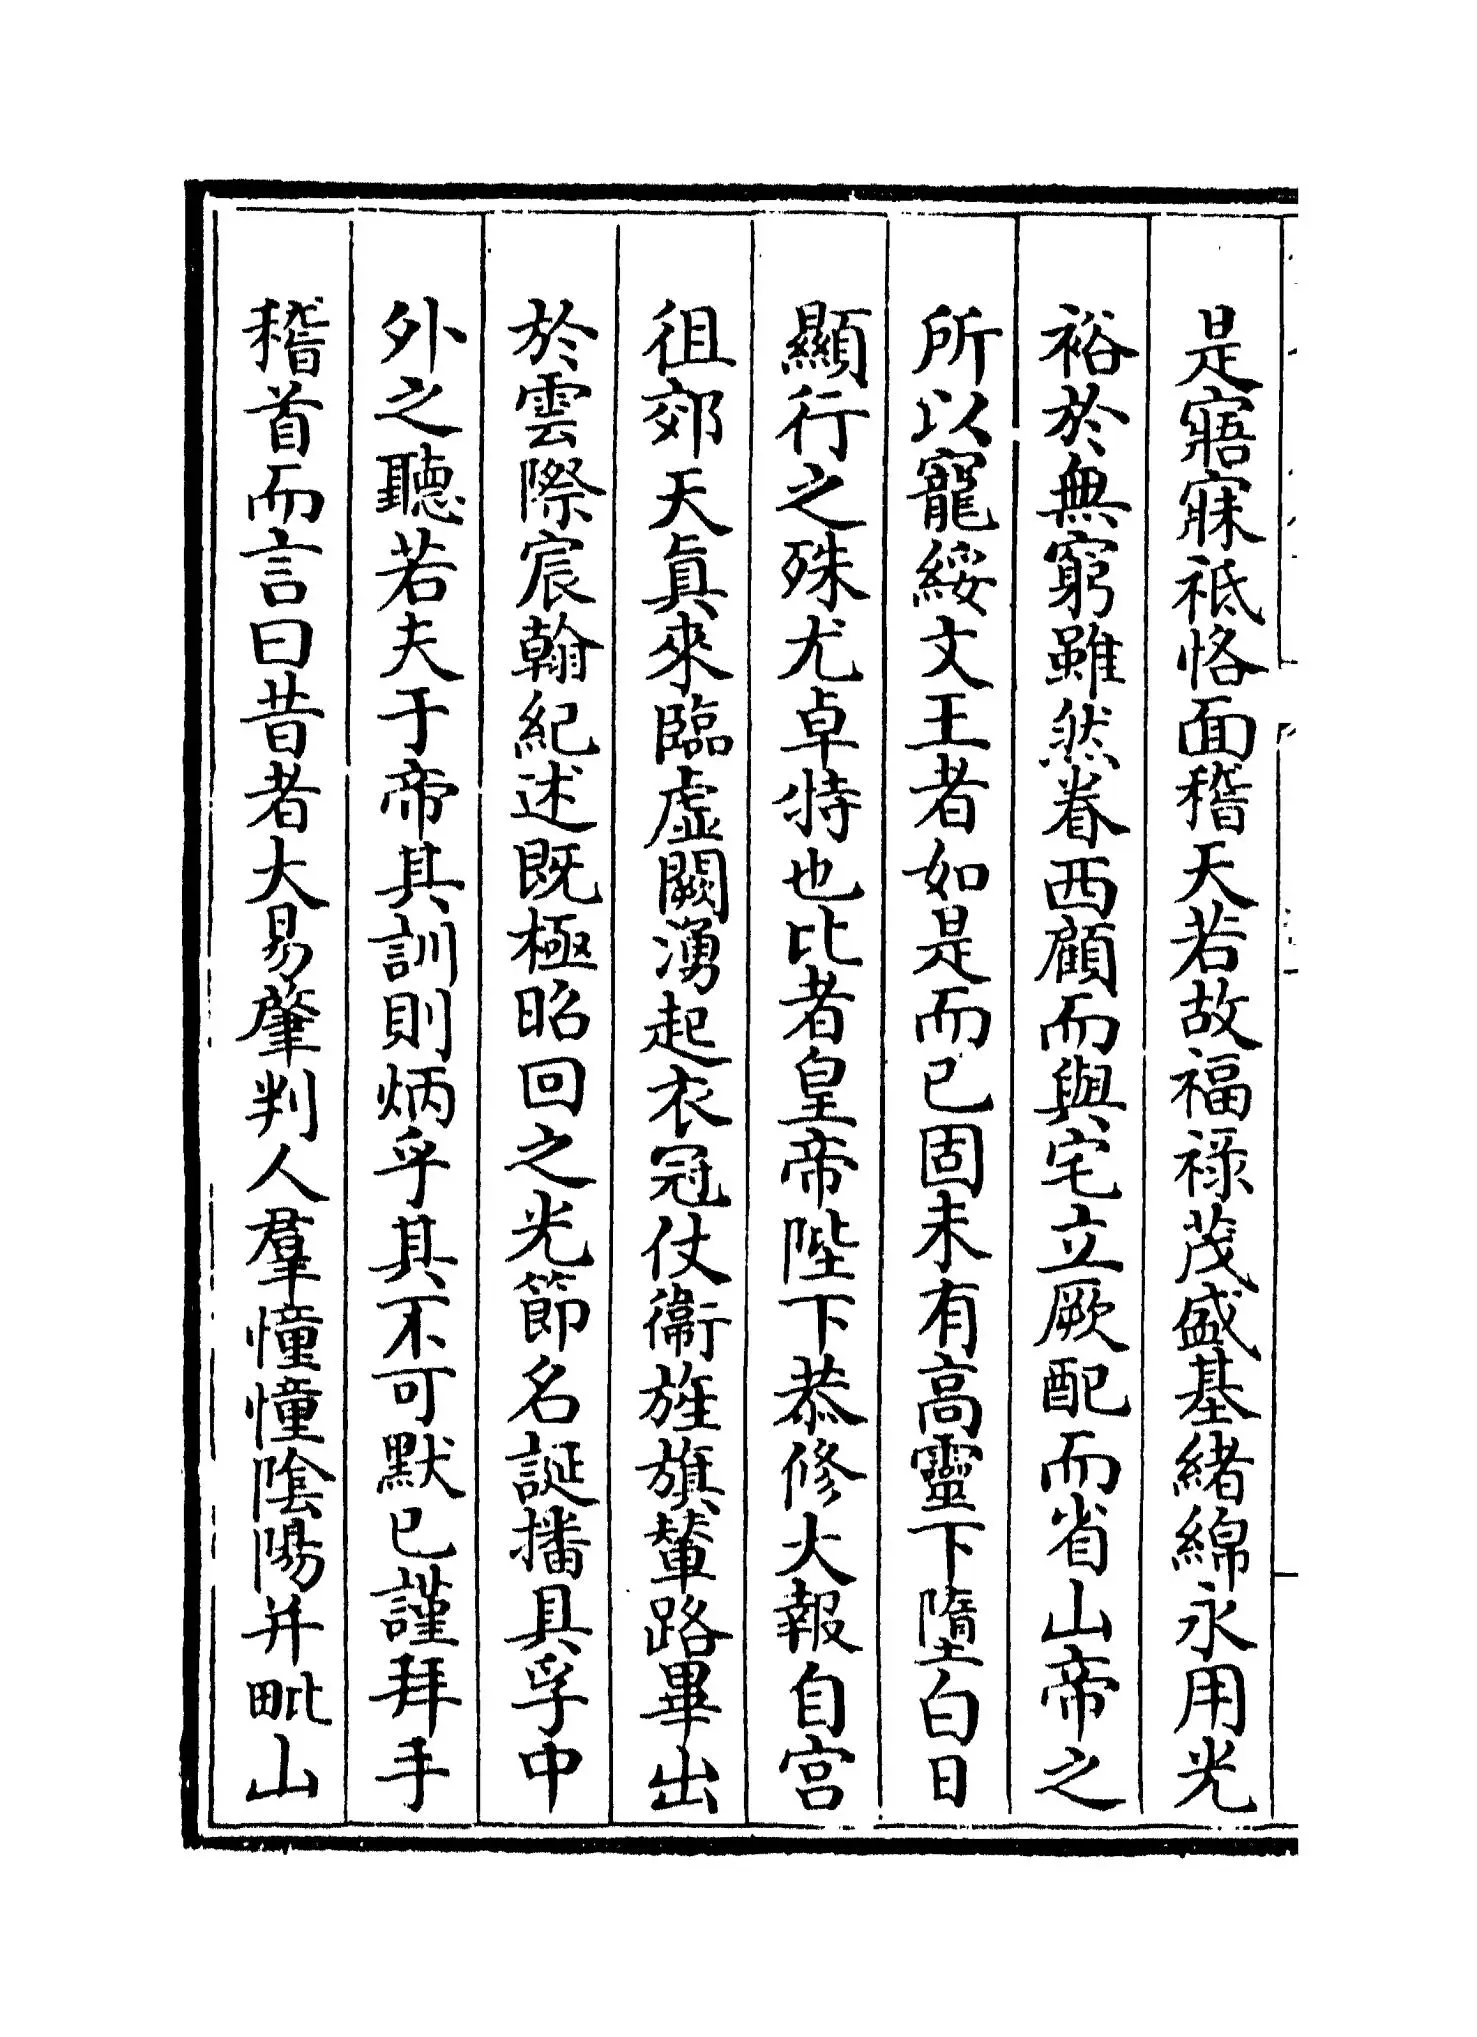 是寤寐祗恪面稽天若故福禄茂盛基緒綿永用光
裕於無窮雖然眷西顧而與宅立厥配而省山帝之
所以寵綏文王者如是而已固未有高靈下墮白日
顯行之殊尤卓特也比者皇帝陛下恭修大報自宫
徂郊天真來臨虚闕湧起衣冠仗衞旌旗輦路畢出
於雲際宸翰紀述既極昭回之光節名誕播具孚中
外之聽若夫于帝其訓則炳乎其不可默已謹拜手
稽首而言曰昔者大易肇判人羣憧憧陰陽并毗山